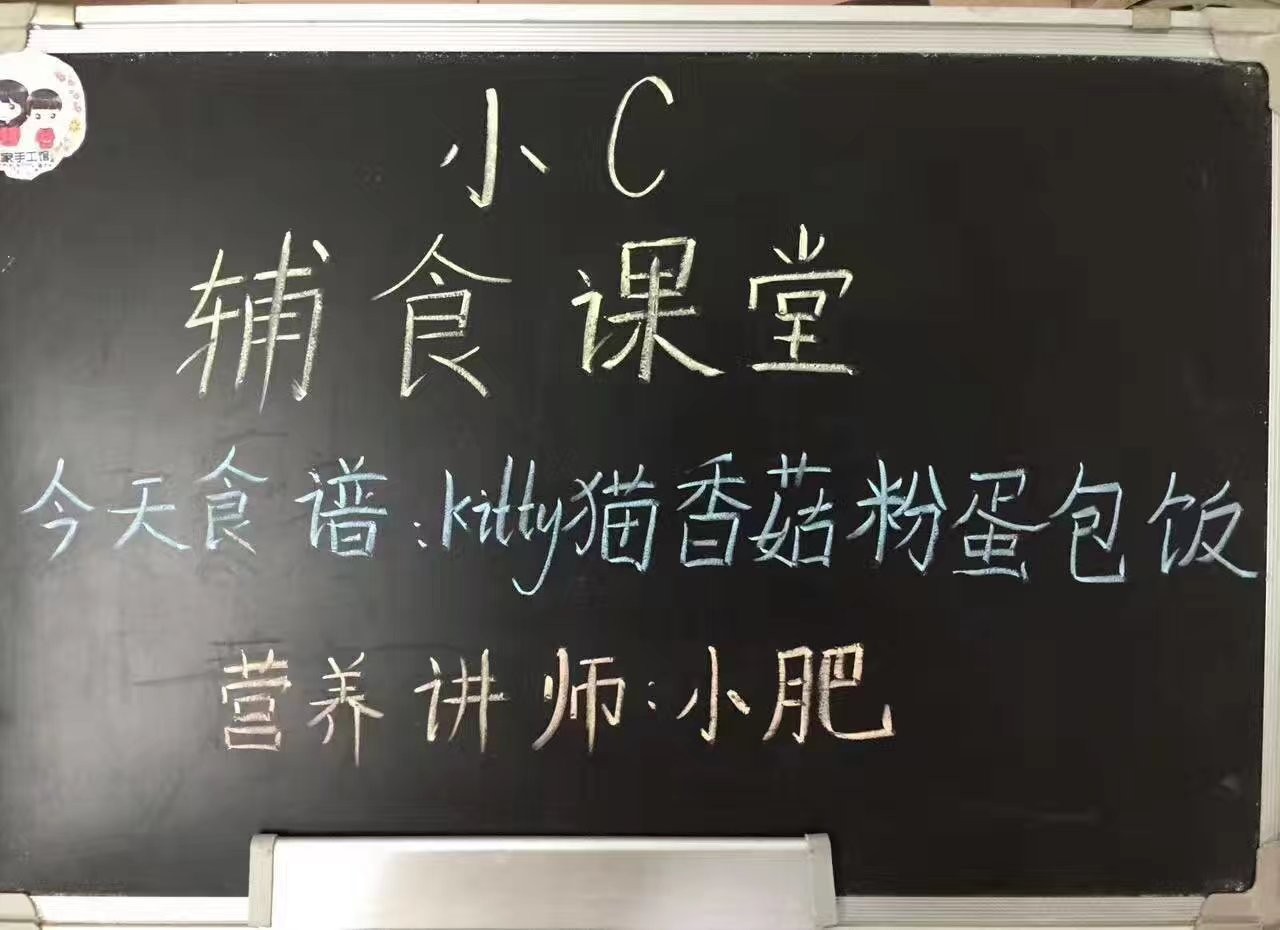 小C
辅食课堂
今天食谱:kitty猫香菇粉蛋包饭
营养讲师:小肥
家手工馆